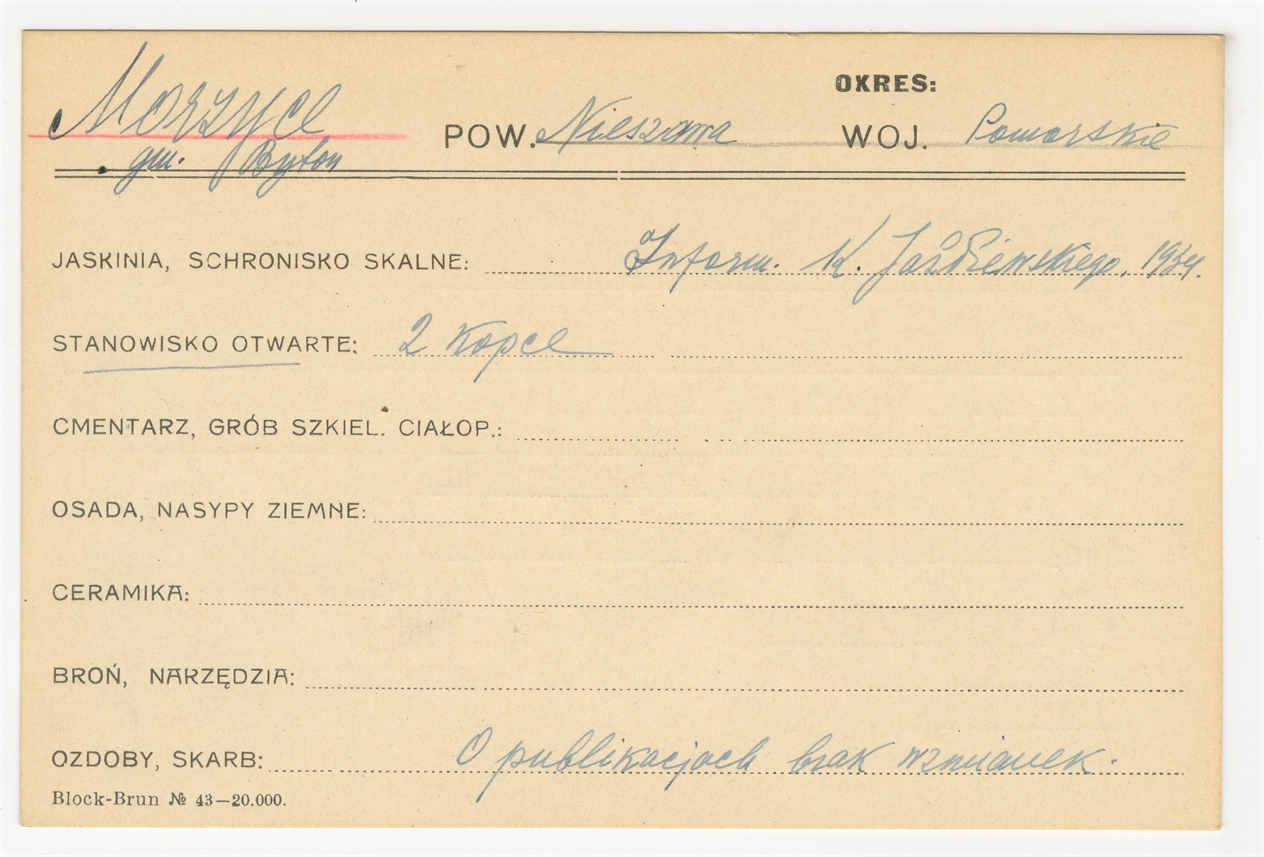 OKRES:
Morzyce POW. Nieszawa WOJ. Pomorskie
gm. Bytoń
JASKINIA, SCHRONISKO SKALNE: Inform. K. Jażdżewskiego,
STANOWISKO OTWARTE: 2 Kopce
CMENTARZ, GRÓB SZKIEL. CIAŁOP.:
OSADA, NASYPY ZIEMNE:
CERAMIKA:
BROŃ, NARZĘDZIA:
OZDOBY, SKARB: O publikacjach brak wzmianek.
Block-Brun № 43—20.000.